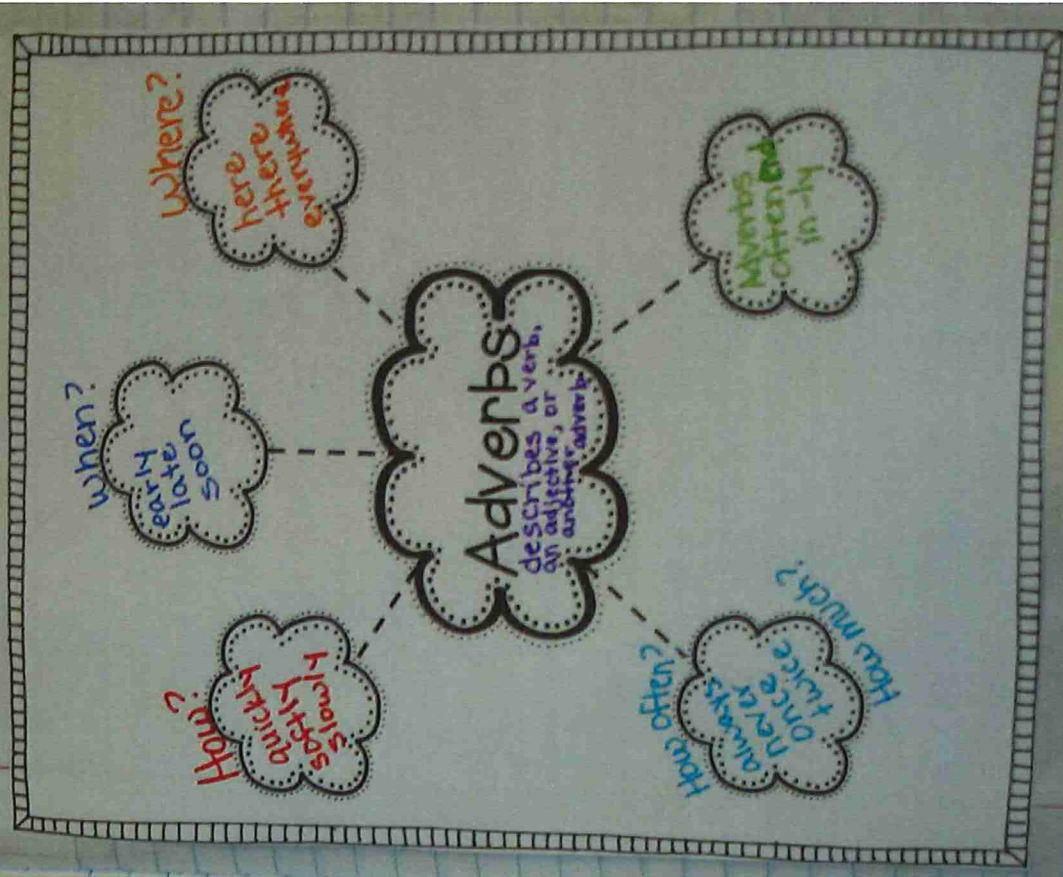 Adverbs
describes a verb,
an adjective, or
another adverb
How?
quickly
softly
slowly
When?
early
late
soon
Where?
here
there
everywhere
How often?
always
never
once
twice
How much?
Adverbs
often end
in -ly